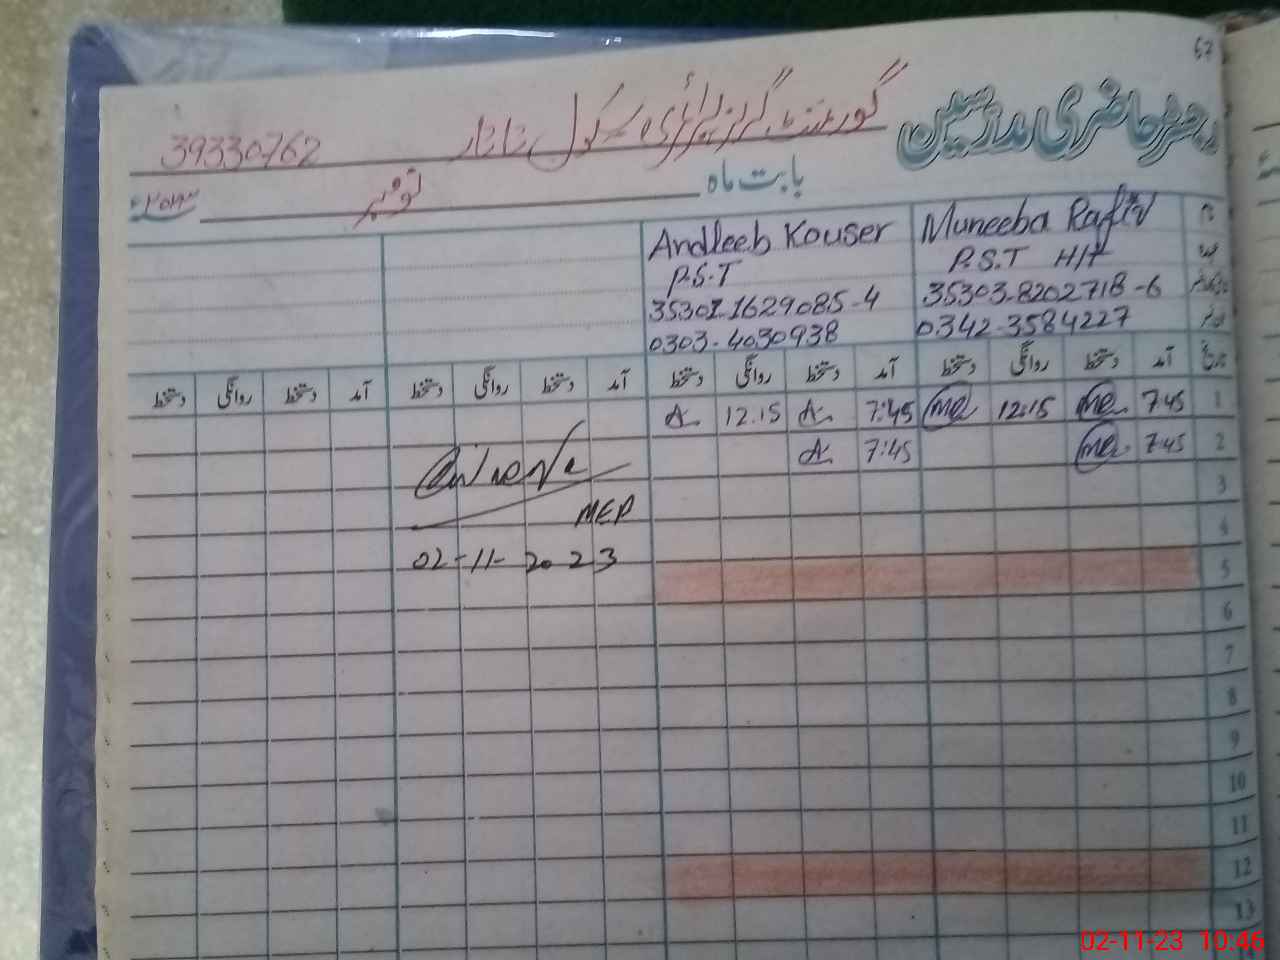 67
رجسٹر حاضری مدرسین
گورنمنٹ گرلز پرائمری سکول تاتار
39330762
بابت ماہ نومبر ۲۰۲۳ء
نام Muneeba Rafiq Andleeb Kouser
عہدہ P.S.T H/T P.S.T
35303-8202718-6 35301-1629085-4
0342-3584227 0303-4030938
تاریخ آمد دستخط روانگی دستخط آمد دستخط روانگی دستخط آمد دستخط روانگی دستخط آمد دستخط روانگی دستخط
1 7:45 12:15 7:45 A 12.15 A
2 7:45 7:45 A
3
4
MEA
5
02-11-2023
6
7
8
9
10
11
12
13
02-11-23 10:46